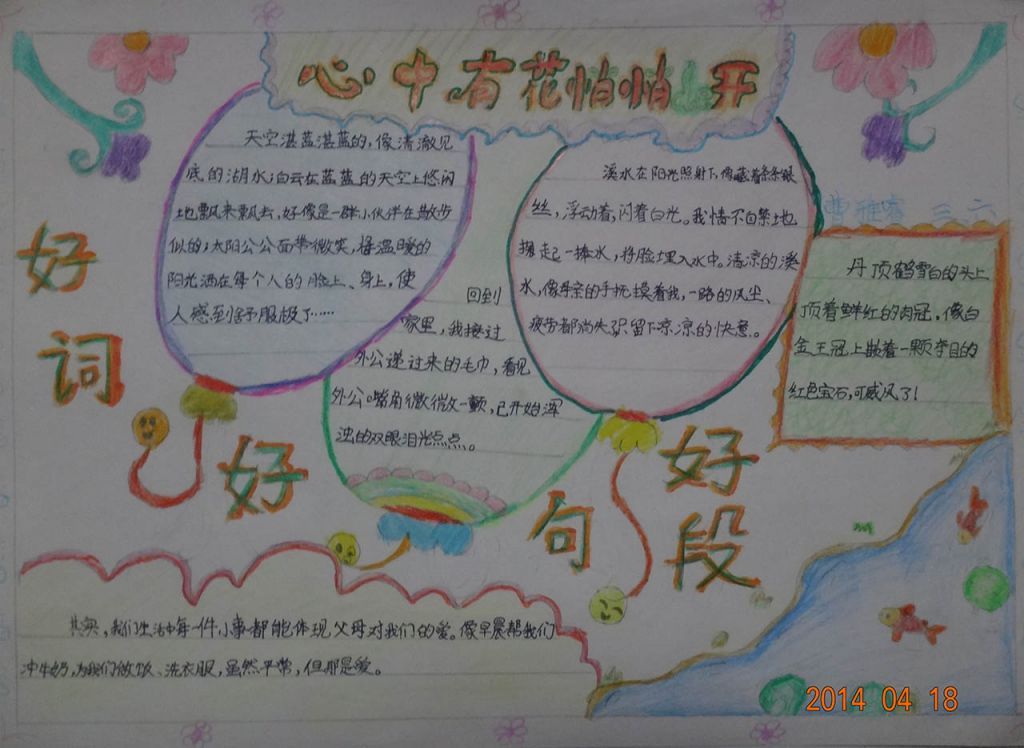 心中有花悄悄开
天空湛蓝湛蓝的,像清澈见
底的湖水;白云在蓝蓝的天空上悠闲
地飘来飘去,好像是一群小伙伴在散步
似的;太阳公公面带微笑,将温暖的
阳光洒在每个人的脸上、身上,使
人感到舒服极了……
溪水在阳光照射下,像藏着条条银
丝,浮动着,闪着白光。我情不自禁地
掬起一捧水,将脸埋入水中。清凉的溪
水,像母亲的手抚摸着我,一路的风尘、
疲劳都消失,只留下凉凉的快意。
曹雅睿 三、六
丹顶鹤雪白的头上
顶着鲜红的肉冠,像白
金王冠上嵌着一颗夺目的
红色宝石,可威风了!
回到
家里,我接过
外公递过来的毛巾,看见
外公嘴角微微一颤,已开始浑
浊的双眼泪光点点。
好词
好句
好段
其实,我们生活中每一件小事都能体现父母对我们的爱。像早晨帮我们
冲牛奶,为我们做饭、洗衣服,虽然平常,但那是爱。
2014 04 18